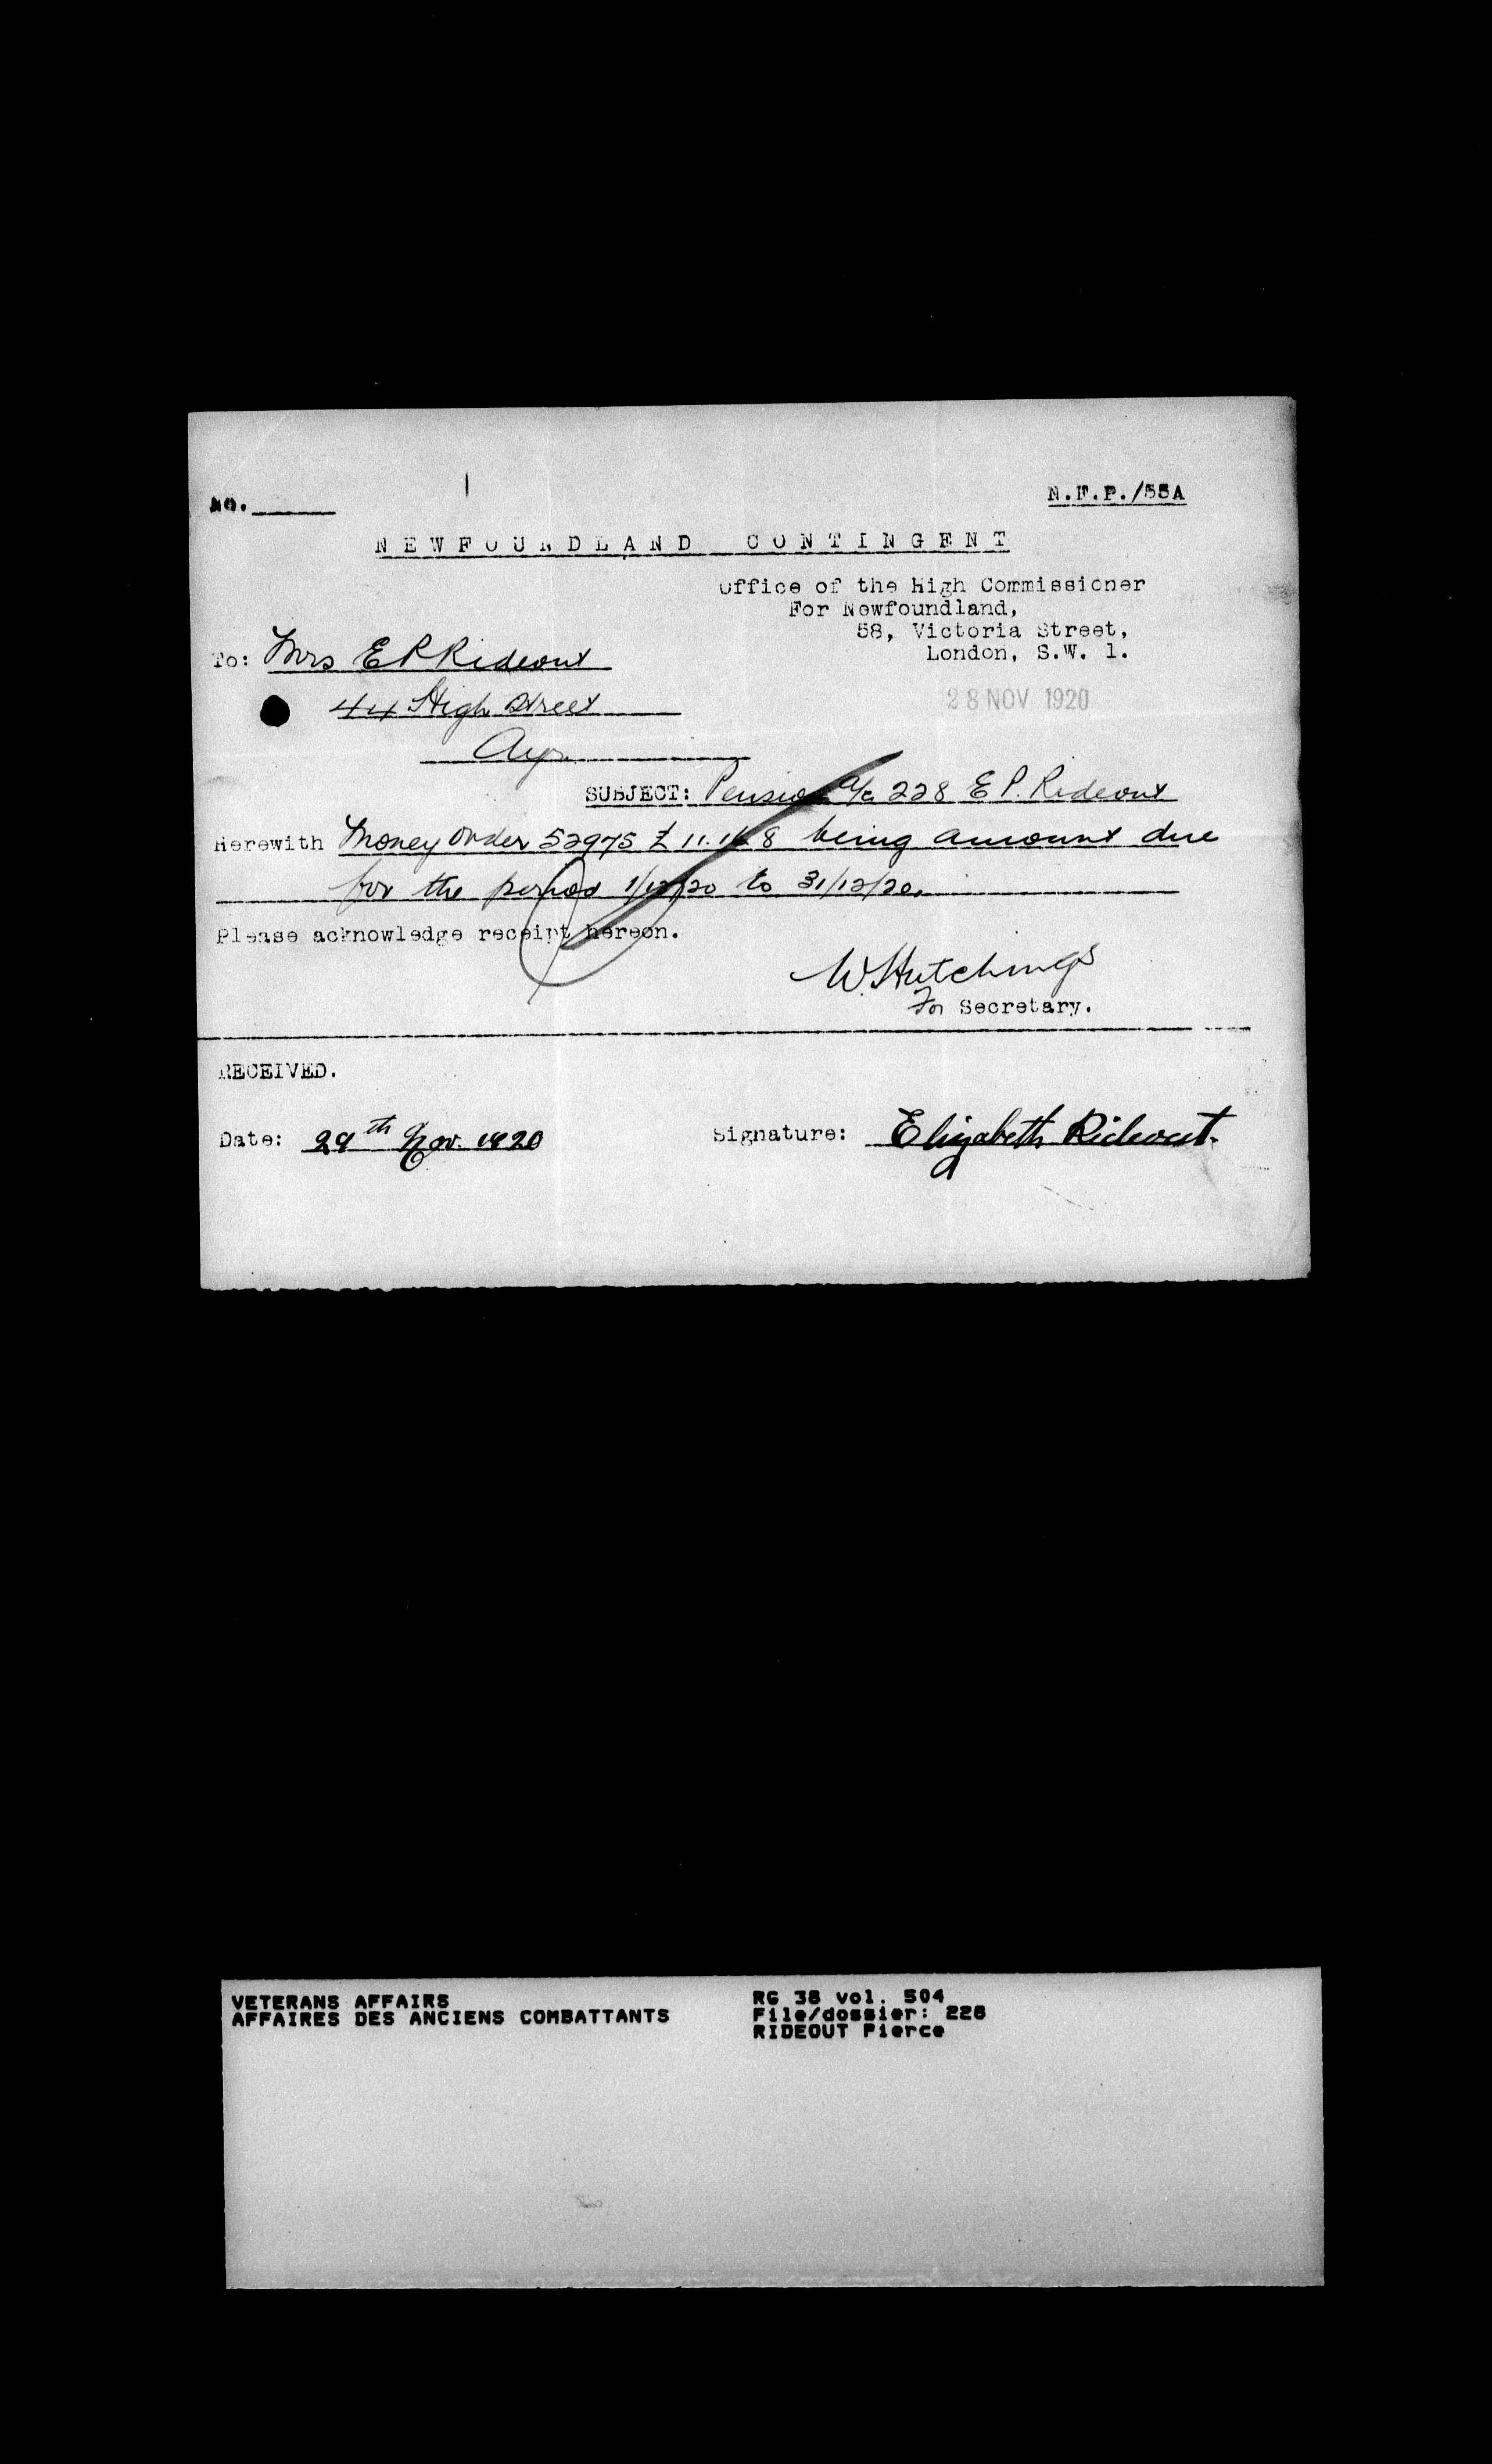 No.
N.F.P./55A
NEWFOUNDLAND CONTINGENT
Office of the High Commissioner
For Newfoundland,
58, Victoria Street,
London, S.W. 1.
To: Mrs E P Rideout
44 High Street
Ayr
28 NOV 1920
SUBJECT: Pension a/c 228 E P. Rideout
Herewith Money Order 52975 £ 11.16.8 being amount due
for the period 1/12/20 to 31/12/20.
Please acknowledge receipt hereon.
W. Hutchings
For Secretary.
RECEIVED.
Date: 29th Nov. 1920
Signature: Elizabeth Rideout.
VETERANS AFFAIRS
AFFAIRES DES ANCIENS COMBATTANTS
RG 38 vol. 504
File/dossier: 228
RIDEOUT Pierce